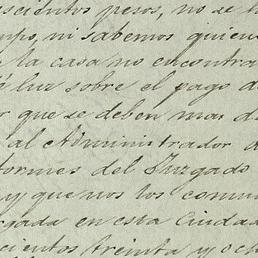 scientos pesos, no se h
mpo, ni sabemos quien
la casa no encontra
a luz sobre el pago d
r que se deben mas d
al Administrador d
formes del Juzgado
y que nos los comu
rgada en esta Ciudad
cientos treinta y och